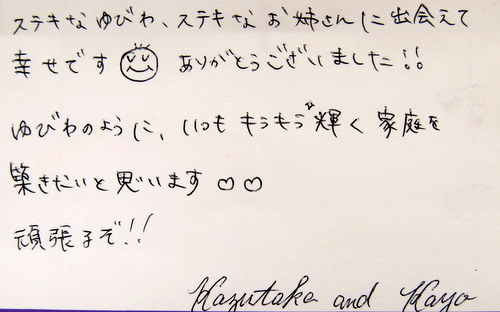 ステキなゆびわ、ステキなお姉さんに出会えて
幸せです ありがとうございました!!
ゆびわのように、いつもキラキラ輝く家庭を
築きたいと思います♡♡
頑張るぞ!!
Kazutaka and Kayo